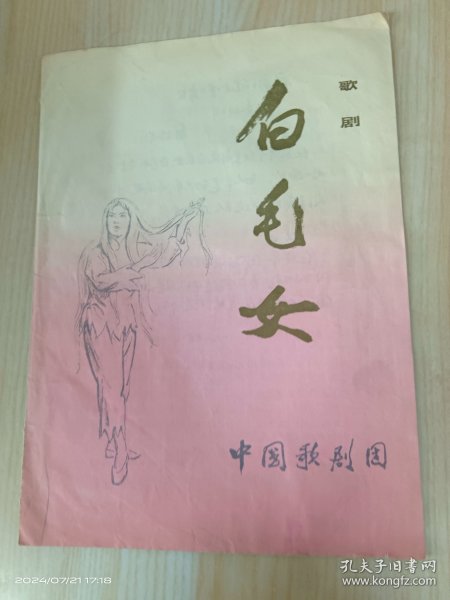 歌剧
白毛女
中国歌剧团
2024/07/21 17:18
孔夫子旧书网
www.kongfz.com